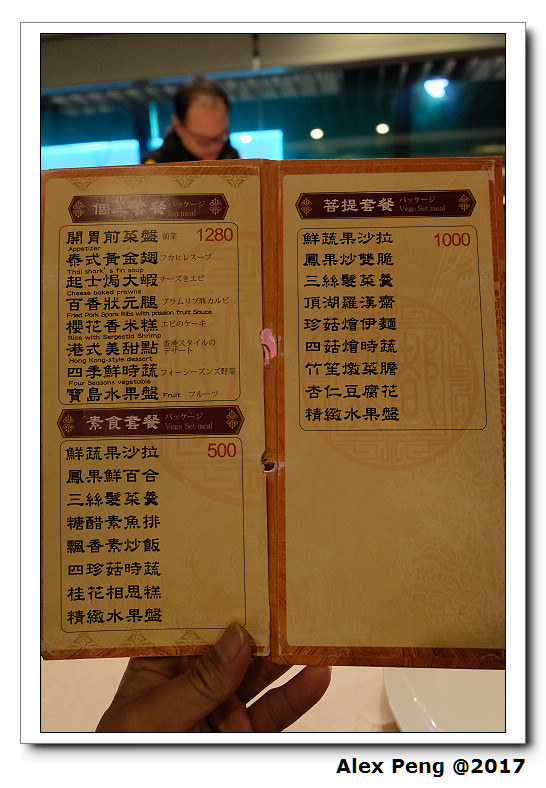 個人套餐 パッケージ Set meal
開胃前菜盤 前菜 1280
Appetizer
泰式黃金翅 フカヒレスープ
Thai shark's fin soup
起士焗大蝦 チーズきエビ
Cheese baked prawns
百香狀元腿 プラムリブ豚カルビ
Fried Pork Spare Ribs with passion fruit Sauce
櫻花香米糕 エビのケーキ
Rice with Sergestid Shrimp
港式美甜點 香港スタイルのデザート
Hong Kong-style dessert
四季鮮時蔬 フォーシーズンズ野菜
Four Seasons vegetable
寶島水果盤 Fruit フルーツ
素食套餐 パッケージ Vege Set meal
鮮蔬果沙拉 500
鳳果鮮百合
三絲髮菜羹
糖醋素魚排
飄香素炒飯
四珍菇時蔬
桂花相思糕
精緻水果盤
菩提套餐 パッケージ Vege Set meal
鮮蔬果沙拉 1000
鳳果炒雙脆
三絲髮菜羹
頂湖羅漢齋
珍菇燴伊麵
四菇燴時蔬
竹笙燉菜膽
杏仁豆腐花
精緻水果盤
Alex Peng @2017